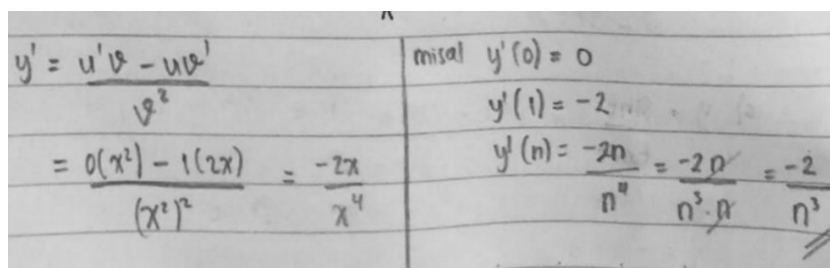 y' = u'v - uv' / v²
= 0(x²) - 1(2x) / (x²)² = -2x / x⁴
misal y'(0) = 0
y'(1) = -2
y'(n) = -2n / n⁴ = -2n / n³.n = -2 / n³